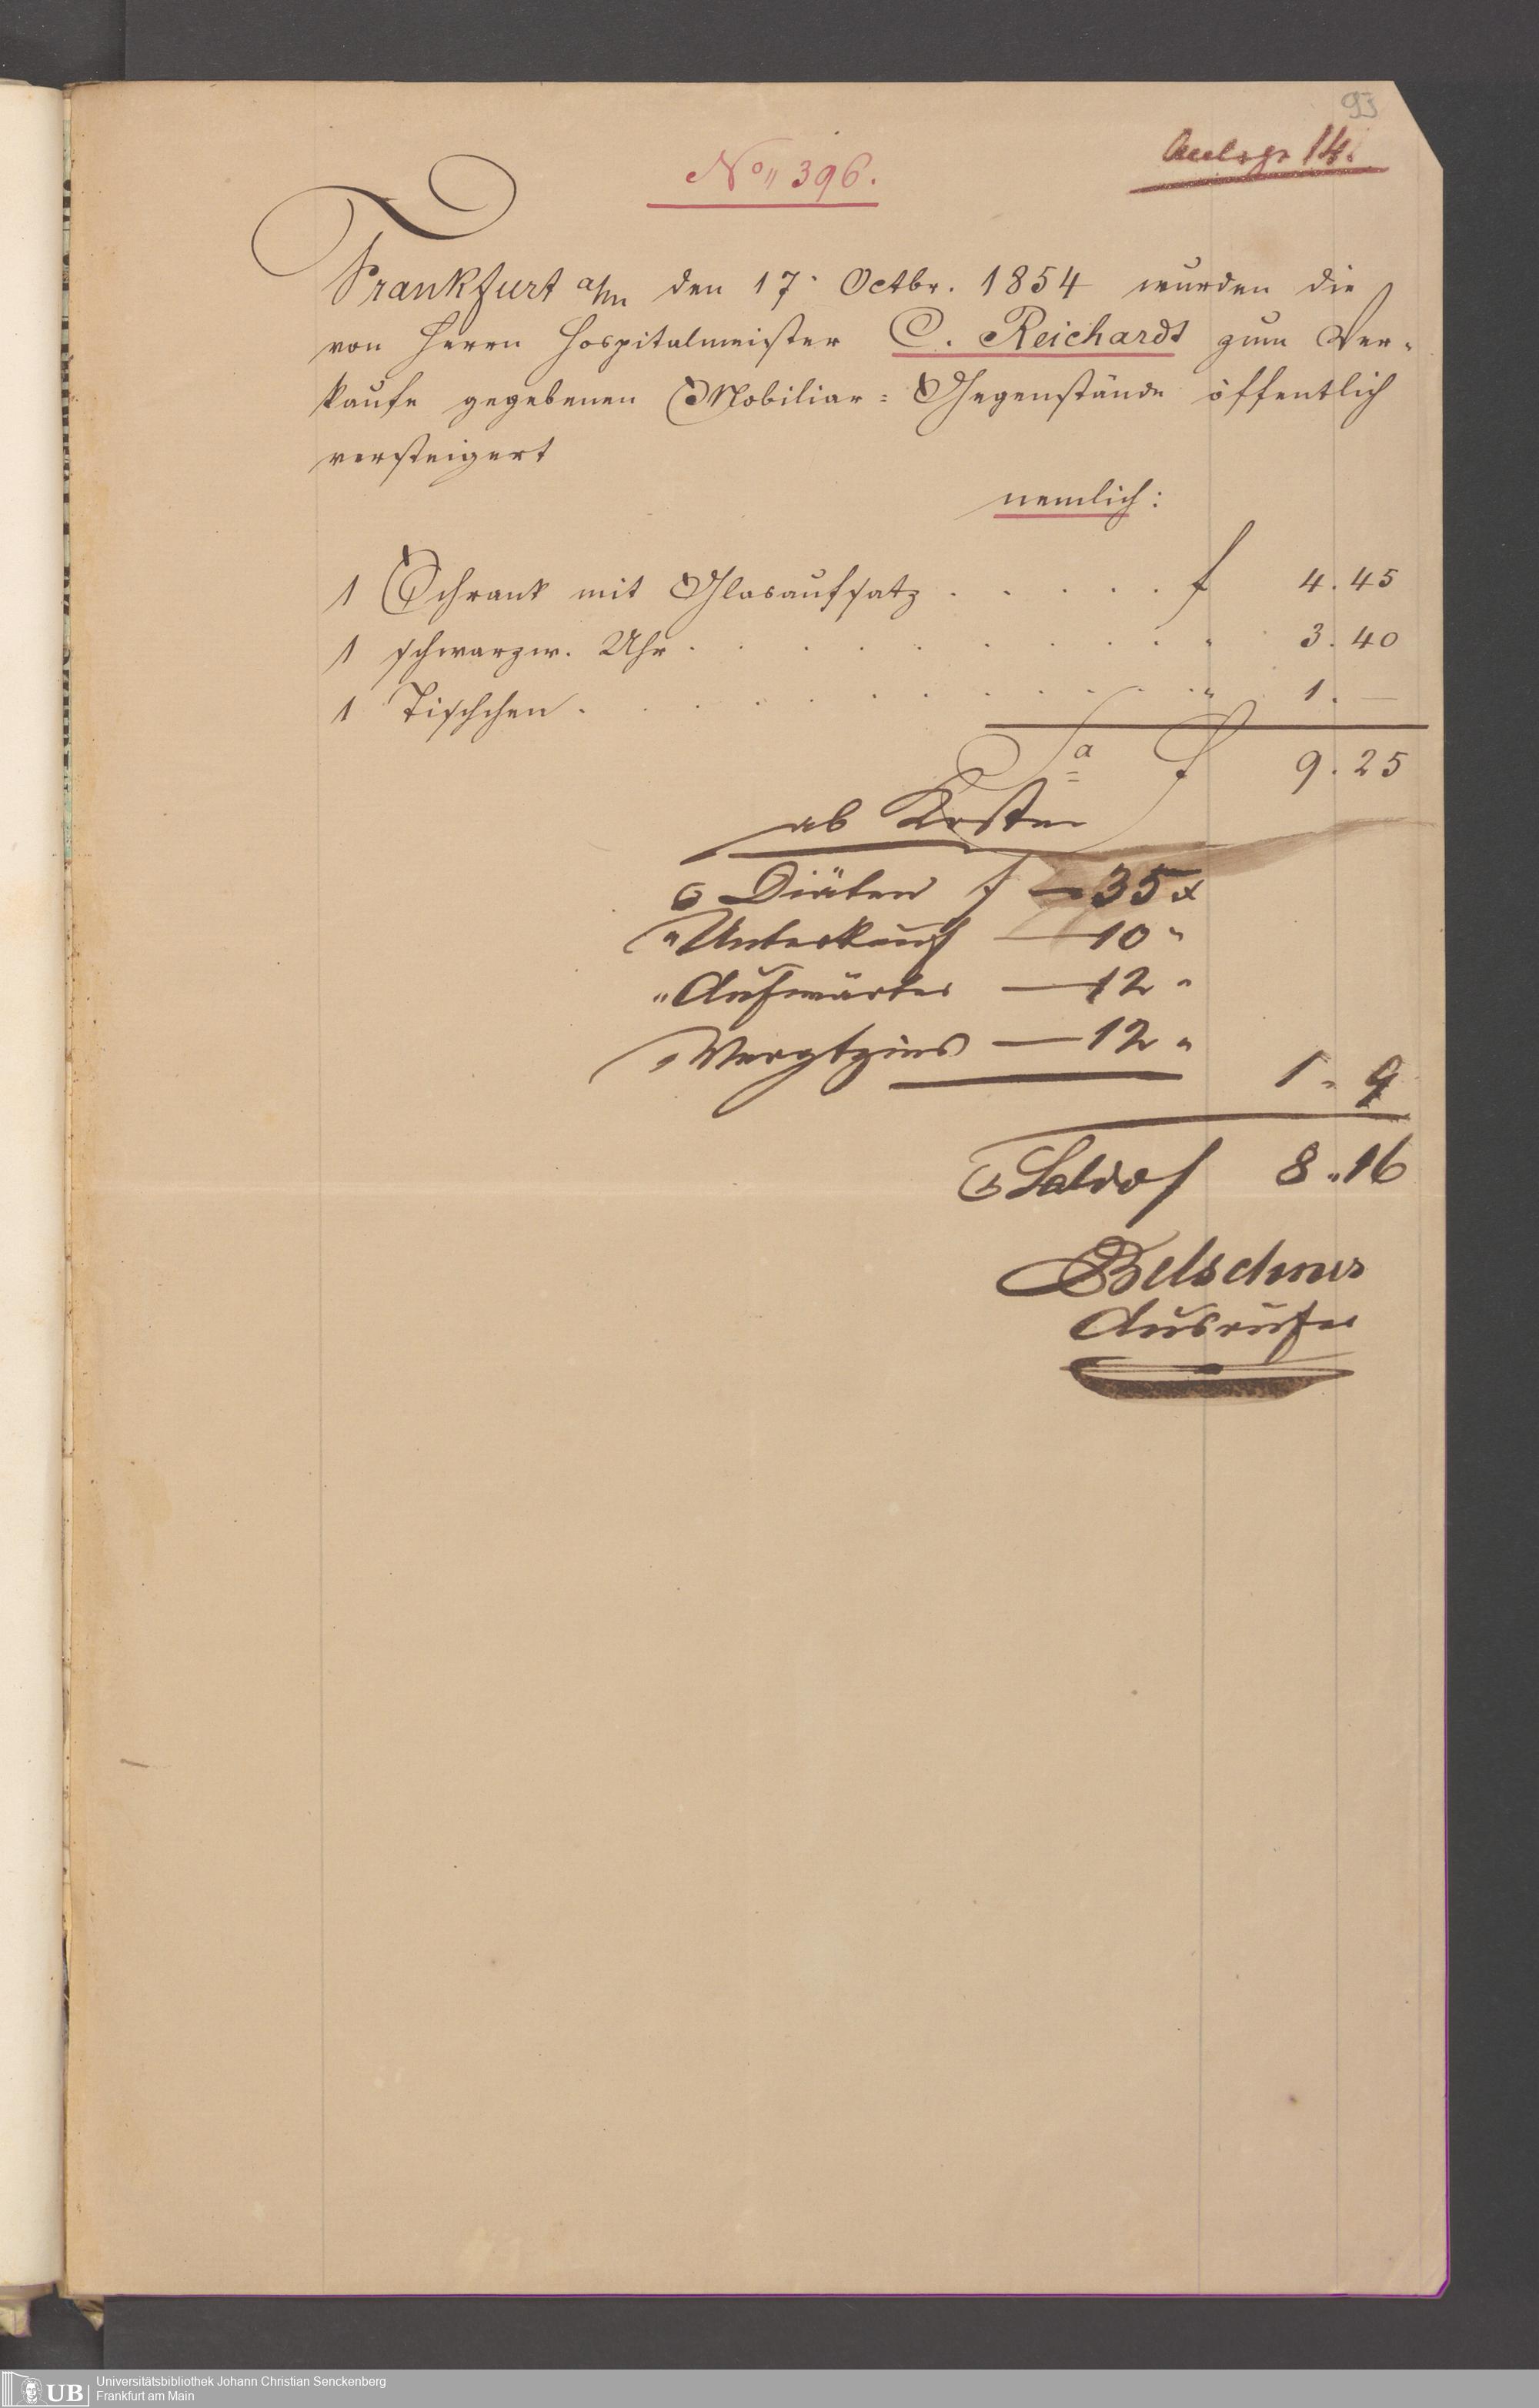 93
Anlage 14.
No. 396.
Frankfurt a/m den 17. Octbr. 1854 wurden die
von Herrn Hospitalmeister C. Reichardt zum Ver-
kaufe gegebenen Mobiliar = Gegenstände öffentlich
versteigert
nemlich:
1 Schrank mit Glasaufsatz . . . . . f 4. 45
1 schwarzw. Uhr . . . . . . . . . . " 3. 40
1 Tischchen . . . . . . . . . . " 1. —
Sa f 9. 25
ab Kosten
Diäten f — 35 x
" Unterkauf — 10 "
" Aufwärter — 12 "
" — 12 "
1 " 9
Saldo f 8 " 16
Belschner
Ausrufer
UB Universitätsbibliothek Johann Christian Senckenberg
Frankfurt am Main